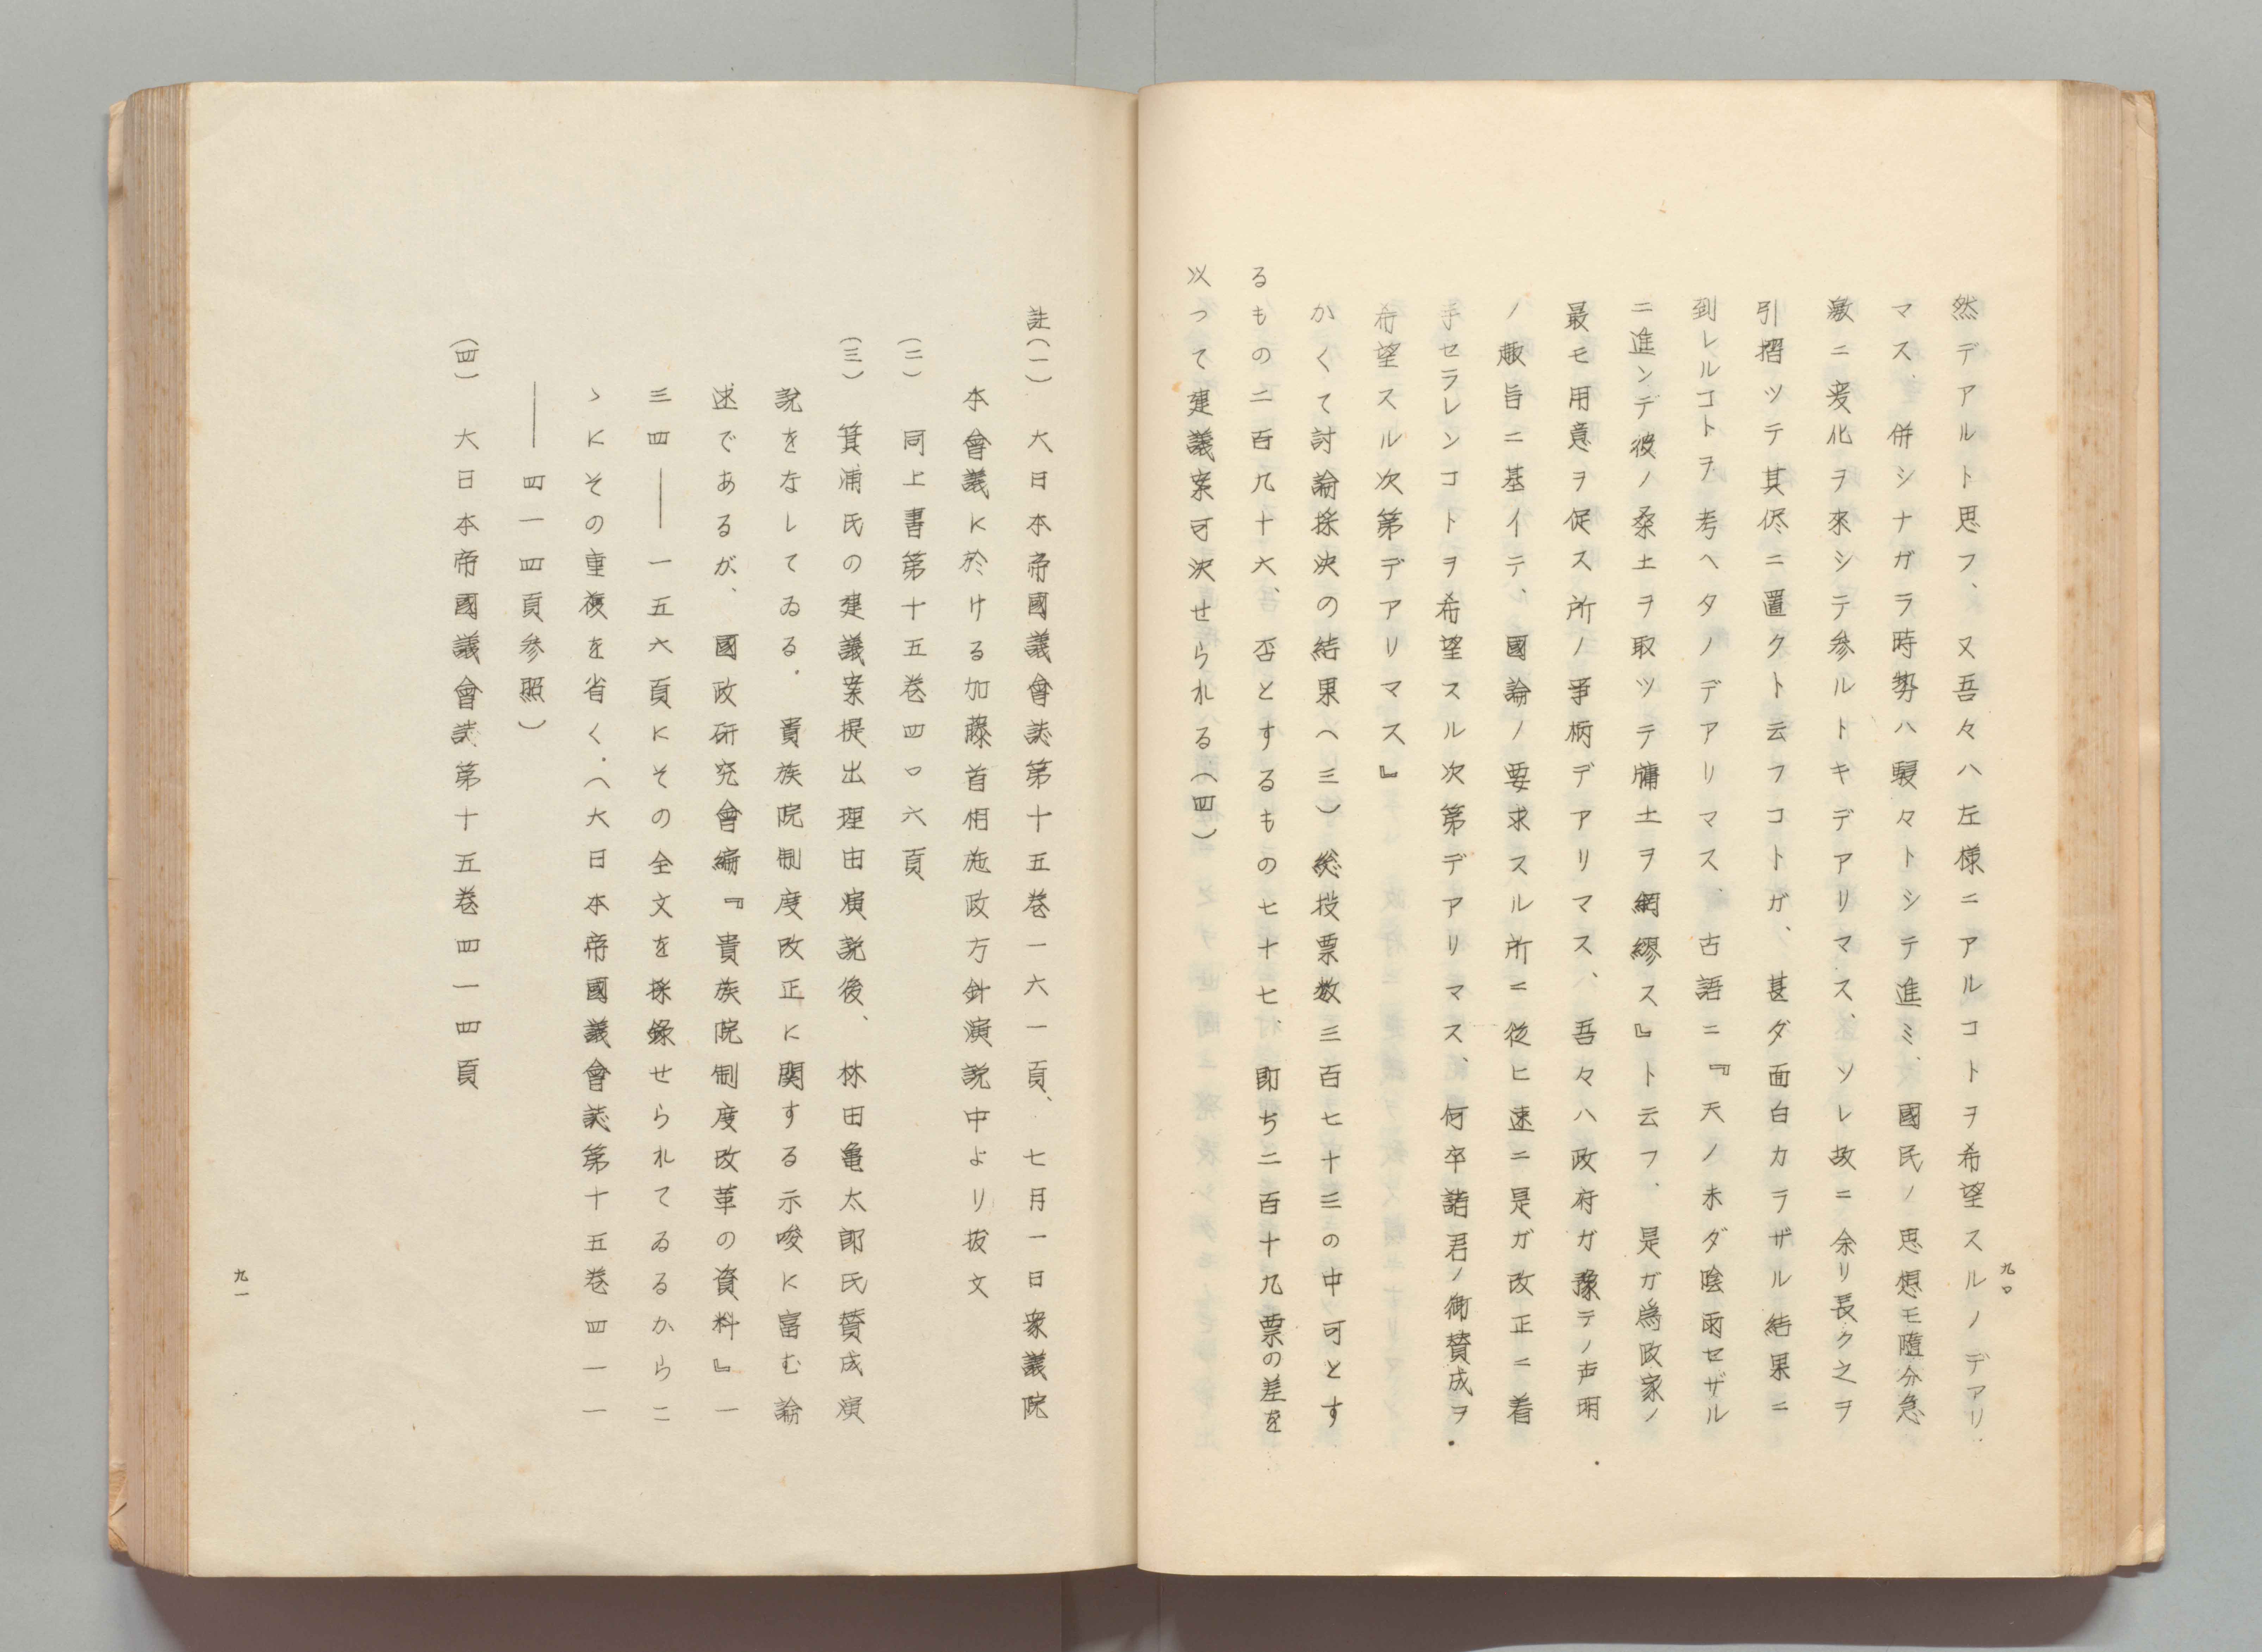 然デアルト思フ、又吾々ハ左様ニアルコトヲ希望スルノデアリ
マス、併シナガラ時勢ハ駸々トシテ進ミ、國民ノ思想モ隨分急
激ニ変化ヲ來シテ参ルトキデアリマス、ソレ故ニ余リ長ク之ヲ
引摺ツテ其侭ニ置クト云フコトガ、甚ダ面白カラザル結果ニ
到レルコトヲ考ヘタノデアリマス、古語ニ『天ノ未ダ陰雨セザル
ニ進ンデ彼ノ桑土ヲ取ツテ牖土ヲ網繆ス』ト云フ、是ガ為政家ノ
最モ用意ヲ促ス所ノ事柄デアリマス、吾々ハ政府ガ豫テノ声明
ノ趣旨ニ基イテ、國論ノ要求スル所ニ従ヒ速ニ是ガ改正ニ着
手セラレンコトヲ希望スル次第デアリマス、何卒諸君ノ御賛成ヲ
希望スル次第デアリマス』
かくて討論採決の結果（三）総投票数三百七十三の中可とす
るもの二百九十六、否とするもの七十七、即ち二百十九票の差を
以つて建議案可決せられる（四）
九〇
註（一）　大日本帝國議會誌第十五巻一六一頁、七月一日衆議院
本會議に於ける加藤首相施政方針演説中より抜文
（二）　同上書第十五巻四〇六頁
（三）　箕浦氏の建議案提出理由演説後、林田亀太郎氏賛成演
説をなしてゐる．貴族院制度改正に関する示唆に富む論
述であるが、國政研究會編『貴族院制度改革の資料』一
三四――一五六頁にその全文を採録せられてゐるからこ
ゝにその重複を省く．（大日本帝國議會誌第十五巻四一一
――四一四頁参照）
（四）　大日本帝國議會誌第十五巻四一四頁
九一